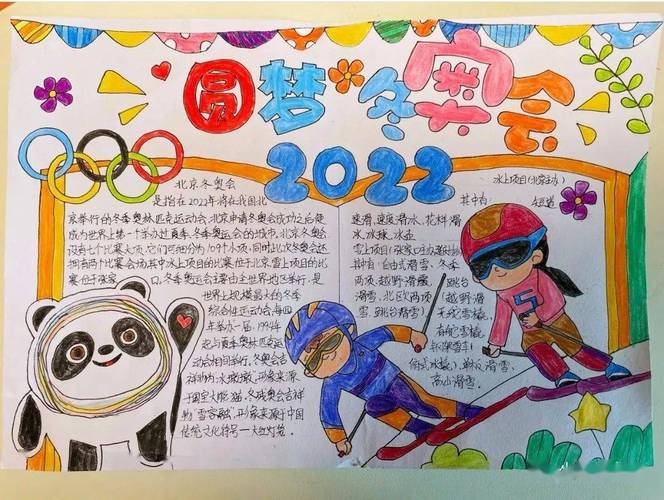 圆梦冬奥会
2022
北京冬奥会
是指在2022年将在我国北
京举行的冬季奥林匹克运动会,北京申请冬奥会成功之后使
成为世界上第一个举办过夏季、冬季奥运会的城市。北京冬奥会
设有七个比赛大项,它们可细分为109个小项,同时此次冬奥会还
拥有两个比赛会场,其中冰上项目的比赛位于北京,雪上项目的比
赛位于张家口。冬季奥运会主要由全世界地区举行,是
世界上规模最大的冬季
综合性运动会,每四
年举办一届,1994年
起与夏季奥林匹克运
动会相间举行。冬奥会吉
祥物为"冰墩墩",形象来源
于国宝大熊猫。冬残奥会吉祥
物"雪容融",形象来源于中国
传统文化符号—大红灯笼。
冰上项目(北京主办)
其中有: 短道
速滑,速度滑冰,花样滑
冰,冰球,冰壶
雪上项目(张家口主办
其中有:自由式滑雪,冬季
两项,越野滑雪, 跳台
滑雪,北欧两项 (越野滑
雪,跳台滑雪) 无舵雪橇,
有舵雪橇,
钢架雪车
(俯式冰橇),单板滑雪
高山滑雪.
5